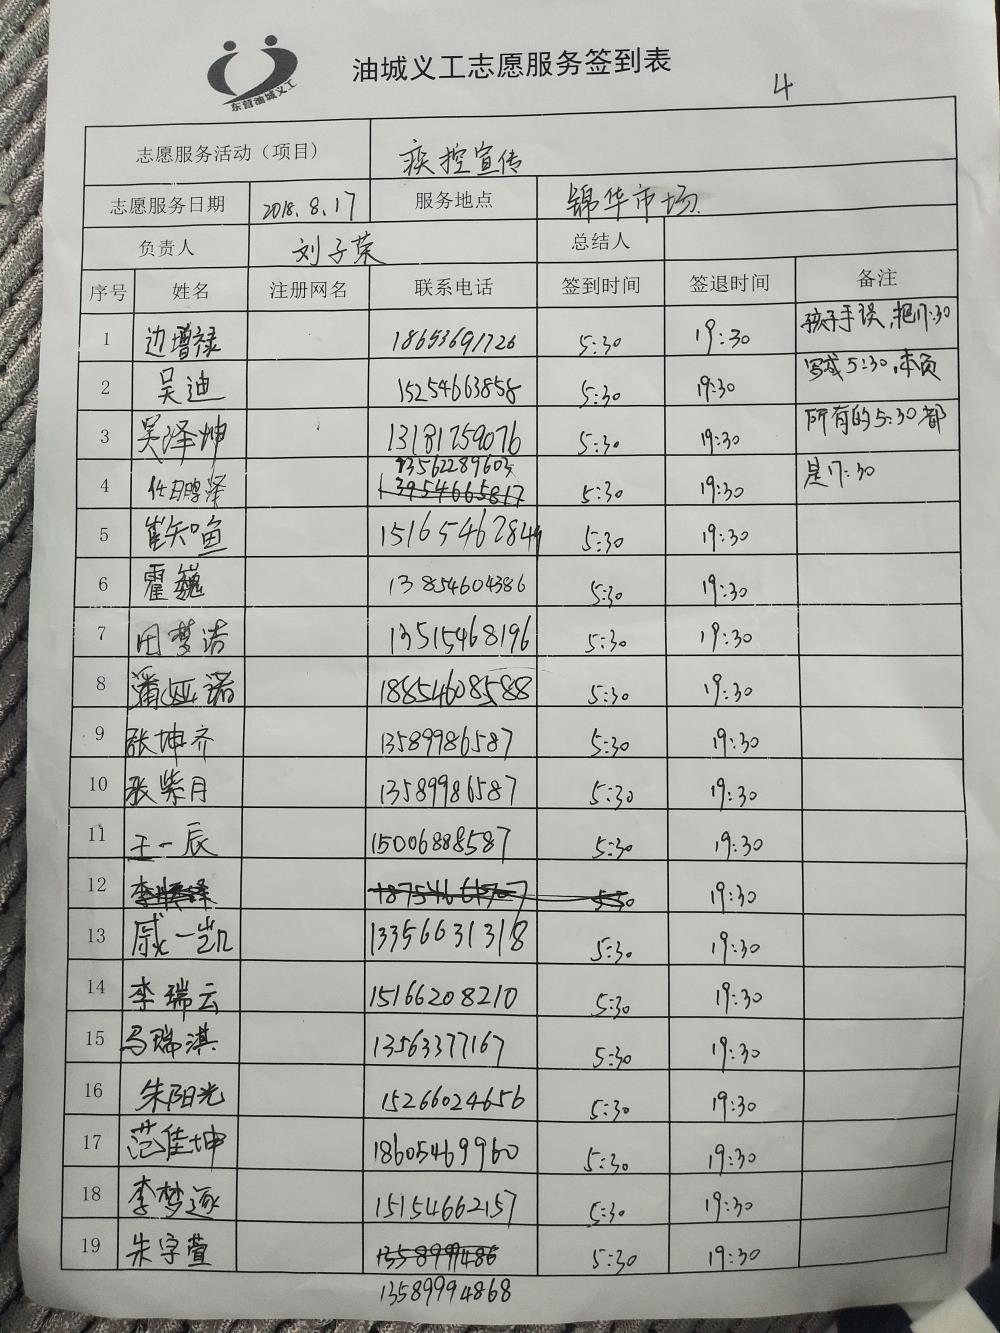 东营油城义工
油城义工志愿服务签到表
4
志愿服务活动（项目） 疾控宣传
志愿服务日期 2018.8.17 服务地点 锦华市场
负责人 刘子荣 总结人
序号 姓名 注册网名 联系电话 签到时间 签退时间 备注
1 边增禄 18653691726 5:30 19:30 孩子手误,把17:30
2 吴迪 15254663858 5:30 19:30 写成5:30,本页
3 吴泽坤 13181759076 5:30 19:30 所有的5:30都
13562289603
4 任鹏泽 13954665817 5:30 19:30 是17:30
5 15165462844 5:30 19:30
6 霍巍 13854604386 5:30 19:30
7 田梦洁 13515468196 5:30 19:30
8 潘娅诺 18854608588 5:30 19:30
9 张坤齐 13589986587 5:30 19:30
10 张紫月 13589986587 5:30 19:30
11 王一辰 15006888587 5:30 19:30
12 5:30 19:30
13 戚一凯 13356631318 5:30 19:30
14 李瑞云 15166208210 5:30 19:30
15 马瑞淇 13563377167 5:30 19:30
16 朱阳光 15266024656 5:30 19:30
17 范佳坤 18605469960 5:30 19:30
18 李梦逐 15154662157 5:30 19:30
19 朱宇萱 5:30 19:30
13589994868